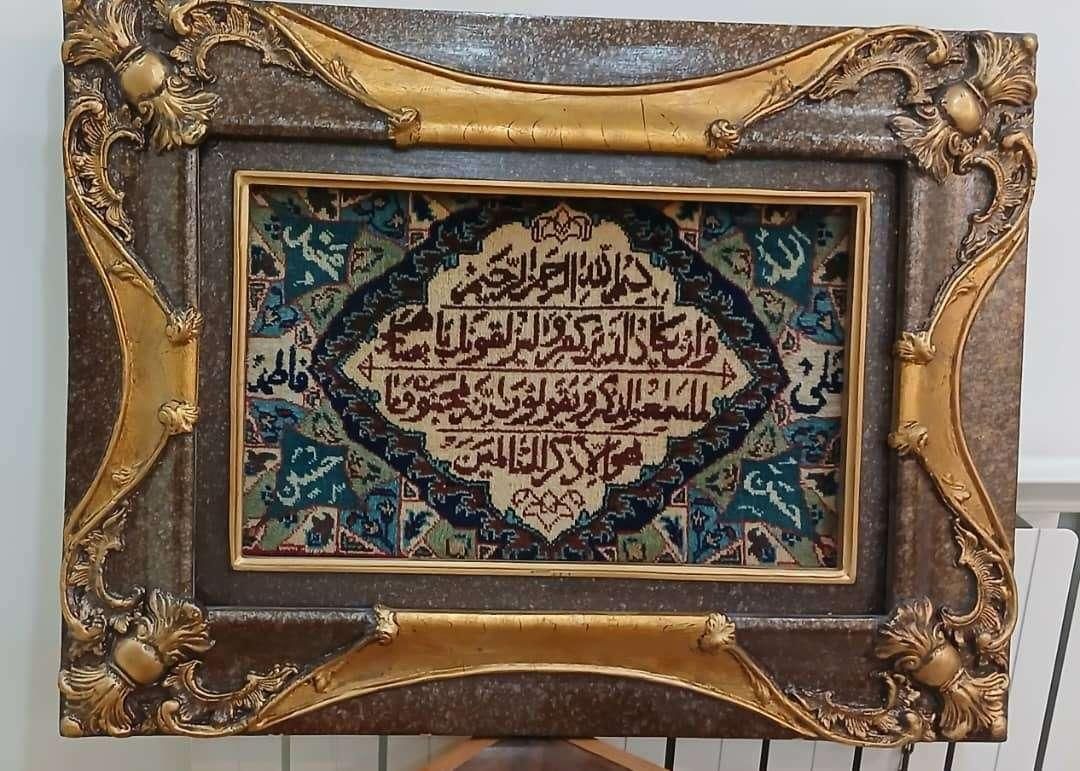 الله
محمد
بسم الله الرحمن الرحیم
وان یکاد الذین کفروا لیزلقونک بابصارهم
لما سمعوا الذکر و یقولون انه لمجنون و ما
هو الا ذکر للعالمین
علی
فاطمه
حسن
حسین